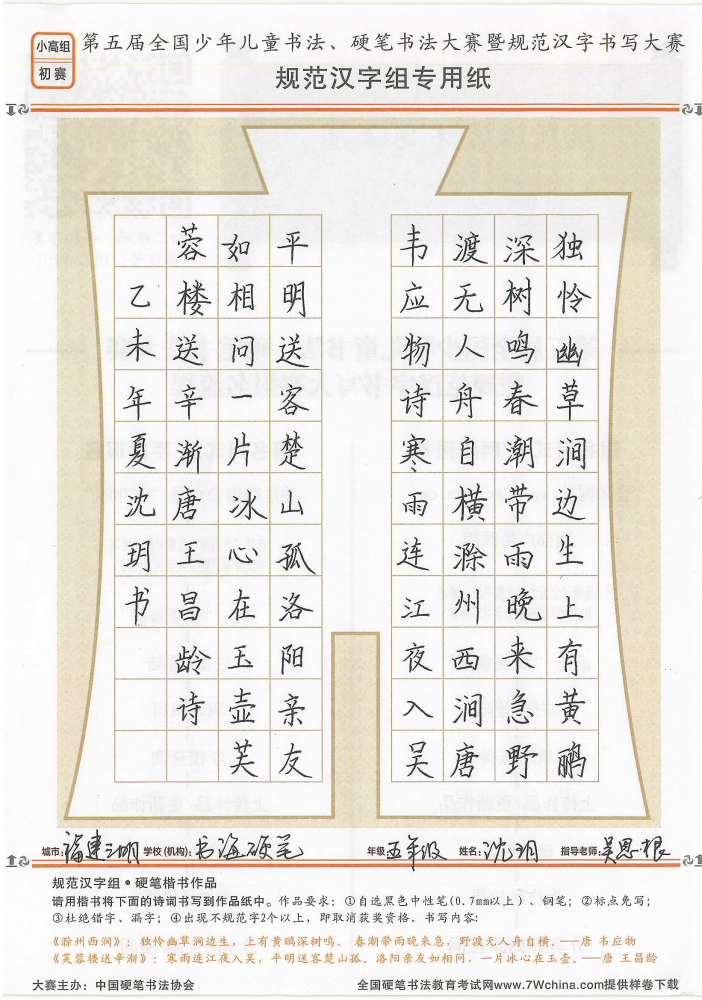 小高组
初赛
第五届全国少年儿童书法、硬笔书法大赛暨规范汉字书写大赛
规范汉字组专用纸
独怜幽草涧边生上有黄鹂
深树鸣春潮带雨晚来急野
渡无人舟自横滁州西涧唐
韦应物诗寒雨连江夜入吴
平明送客楚山孤洛阳亲友
如相问一片冰心在玉壶芙
蓉楼送辛渐唐王昌龄诗
乙未年夏沈玥书
城市:福建三明 学校(机构):书海硬笔 年级:五年级 姓名:沈玥 指导老师:吴思根
规范汉字组●硬笔楷书作品
请用楷书将下面的诗词书写到作品纸中。作品要求：①自选黑色中性笔(0.7mm以上)、钢笔；②标点免写；
③杜绝错字、漏字；④出现不规范字2个以上，即取消获奖资格。书写内容：
《滁州西涧》：独怜幽草涧边生，上有黄鹂深树鸣。春潮带雨晚来急，野渡无人舟自横。——唐 韦应物
《芙蓉楼送辛渐》：寒雨连江夜入吴，平明送客楚山孤。洛阳亲友如相问，一片冰心在玉壶。——唐 王昌龄
大赛主办：中国硬笔书法协会 全国硬笔书法教育考试网www.7Wchina.com提供样卷下载